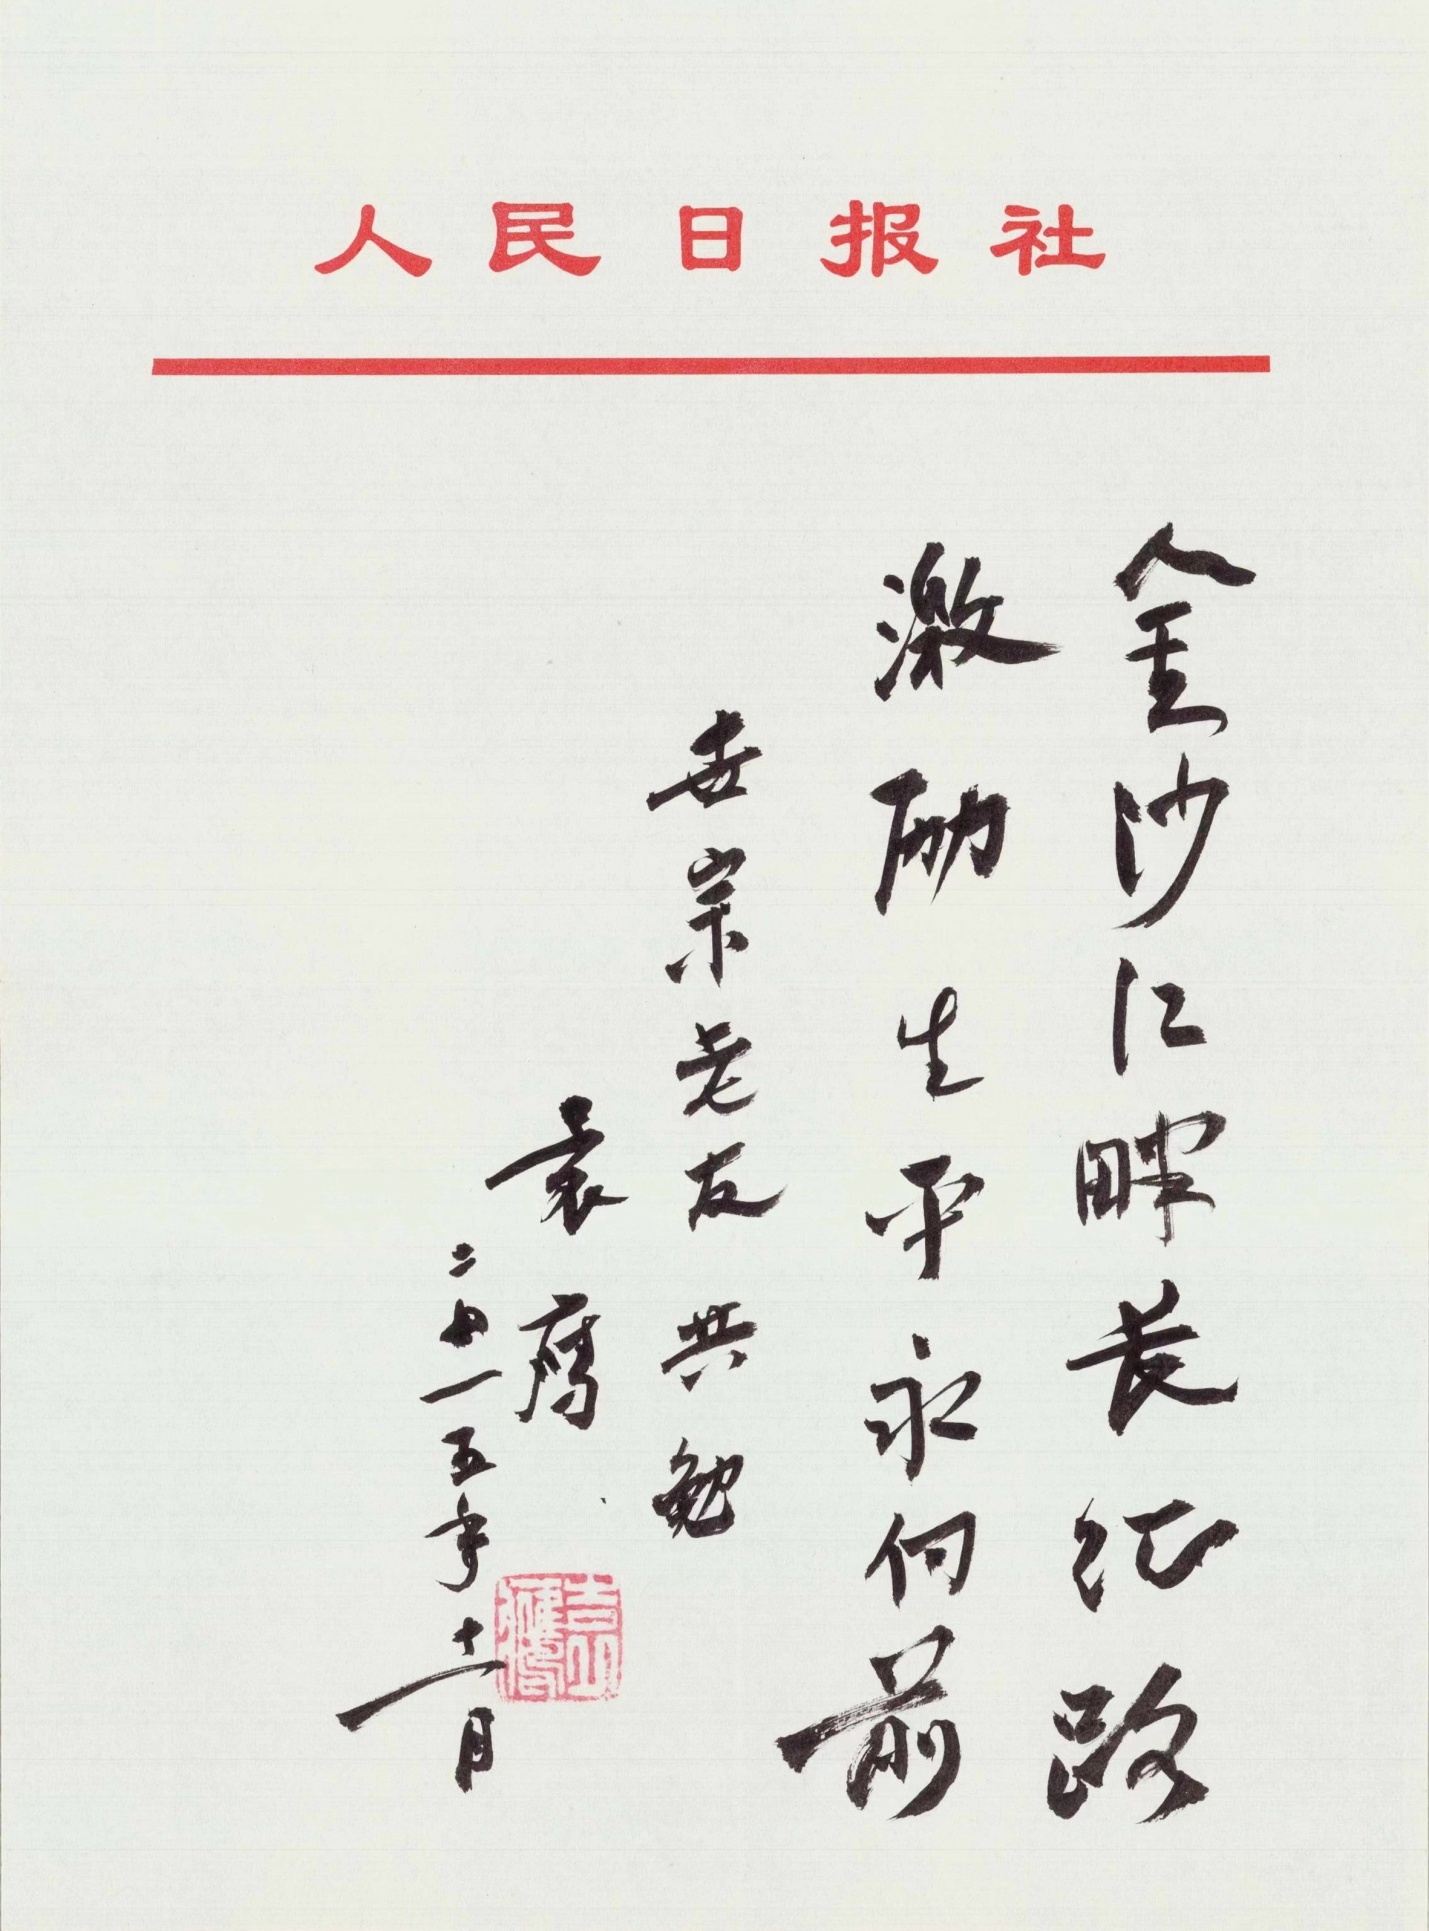 人民日报社
金沙江畔长征路
激励生平永向前
世宗老友共勉
袁鹰
二〇一五年十一月